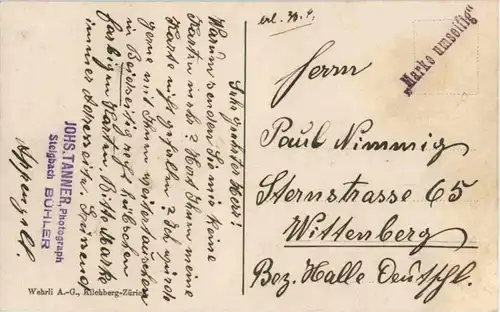 erl. 30. 9.
„Marke umseitig"
Herrn
Paul Nimmig
Sternstrasse 65
Wittenberg
Bez. Halle Deutschl.
Sehr geehrter Herr!
Warum senden Sie mir keine
Karten mehr? Hat Ihnen meine
Karte nicht gefallen? Ich würde
gerne mit Ihnen weitertauschen
in Beidseitig recht hübschen
farbigen Karten. Bitte Marke
immer Ansichtseite. Grüssend
Appenzell.
JOHS. TANNER, Photograph
Steigbach BÜHLER
Wehrli A.-G., Kilchberg-Zürich